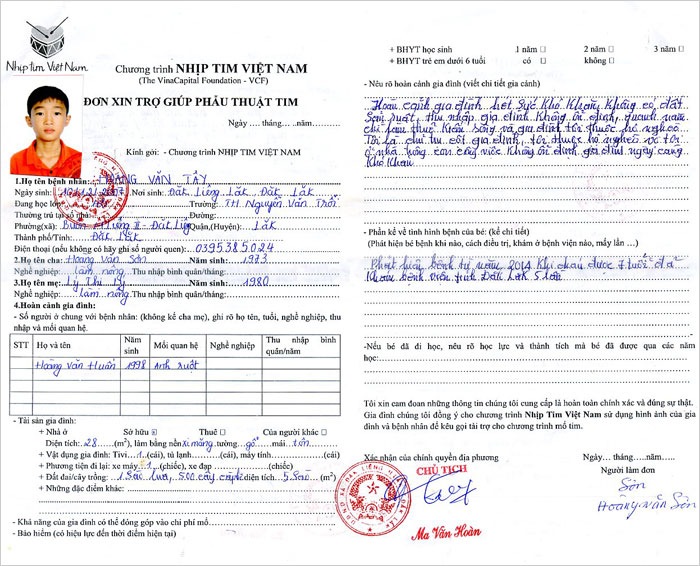 Nhịp tim Việt Nam
Chương trình NHỊP TIM VIỆT NAM
(The VinaCapital Foundation - VCF)
ĐƠN XIN TRỢ GIÚP PHẪU THUẬT TIM
Ngày .... tháng... ..năm..........
Kính gởi: - Chương trình NHỊP TIM VIỆT NAM
1.Họ tên bệnh nhân: HOÀNG VĂN TÂY
Ngày sinh: Nơi sinh: Đăk Liêng Lăk Đăk Lăk
Đang học lớp Trường: TH Nguyễn Văn Trỗi
Thường trú tại số nhà: Đường:
Phường(xã): Đăk Liêng Quận,(Huyện): Lăk
Thành phố/Tỉnh: Đăk Lăk
Điện thoại (nếu không có hãy ghi số người quen): 0395385024
2.Họ tên cha: Hoàng Văn Sơn Năm sinh: 1973
Nghề nghiệp: làm nông Thu nhập bình quân/tháng:
3.Họ tên mẹ: Lý Thị Năm sinh: 1980
Nghề nghiệp: làm nông Thu nhập bình quân/tháng:
4.Hoàn cảnh gia đình:
- Số người ở chung với bệnh nhân: (không kể cha mẹ), ghi rõ họ tên, tuổi, nghề nghiệp, thu
nhập và mối quan hệ.
STT Họ và tên Năm sinh Mối quan hệ Nghề nghiệp Thu nhập bình quân/năm
Hoàng Văn Huấn 1998 Anh ruột
- Tài sản gia đình:
+ Nhà ở Sở hữu Thuê Của người khác
Diện tích: 28 (m2), làm bằng nền Xi măng tường gỗ mái tôn
+ Vật dụng gia đình: Tivi..1..(cái), tủ lạnh..........(cái), máy tính..........(cái)
+ Phương tiện đi lại: xe máy 1 (chiếc), xe đạp ............(chiếc)
+ Đất đai/cây trồng: 1 Sào lúa, 500 cây cà phê diện tích 5 Sào (m2)
+ Những đặc điểm khác:
- Khả năng của gia đình có thể đóng góp vào chi phí mổ
- Bảo hiểm (có hiệu lực đến thời điểm hiện tại)
+ BHYT học sinh 1 năm 2 năm 3 năm
+ BHYT trẻ em dưới 6 tuổi có không
- Nêu rõ hoàn cảnh gia đình (viết chi tiết gia cảnh)
Hoàn cảnh gia đình hết sức khó khăn không có đất
sản xuất, thu nhập gia đình không ổn định, quanh năm
chỉ làm thuê kiếm sống và gia đình tôi thuộc hộ nghèo.
Tôi là chủ trụ cột gia đình, tôi thuộc hộ nghèo và tôi
ở nhà trông con công việc không ổn định gia đình ngày càng
khó khăn
- Phần kể về tình hình bệnh của bé: (kể chi tiết)
(Phát hiện bé bệnh khi nào, cách điều trị, khám ở bệnh viện nào, mấy lần …)
Phát hiện bệnh từ năm 2014 khi cháu được 7 tuổi đã
khám bệnh viện tỉnh Đăk Lăk 5 lần
-Nếu bé đã đi học, nêu rõ học lực và thành tích mà bé đã được qua các năm
học:
Tôi xin cam đoan những thông tin chúng tôi cung cấp là hoàn toàn chính xác và đúng sự thật.
Gia đình chúng tôi đồng ý cho chương trình Nhịp Tim Việt Nam sử dụng hình ảnh của gia
đình và bệnh nhân để kêu gọi tài trợ cho chương trình mổ tim.
Xác nhận của chính quyền địa phương Ngày......tháng......năm.....
CHỦ TỊCH Người làm đơn
Sơn
Ma Văn Hoàn Hoàng Văn Sơn